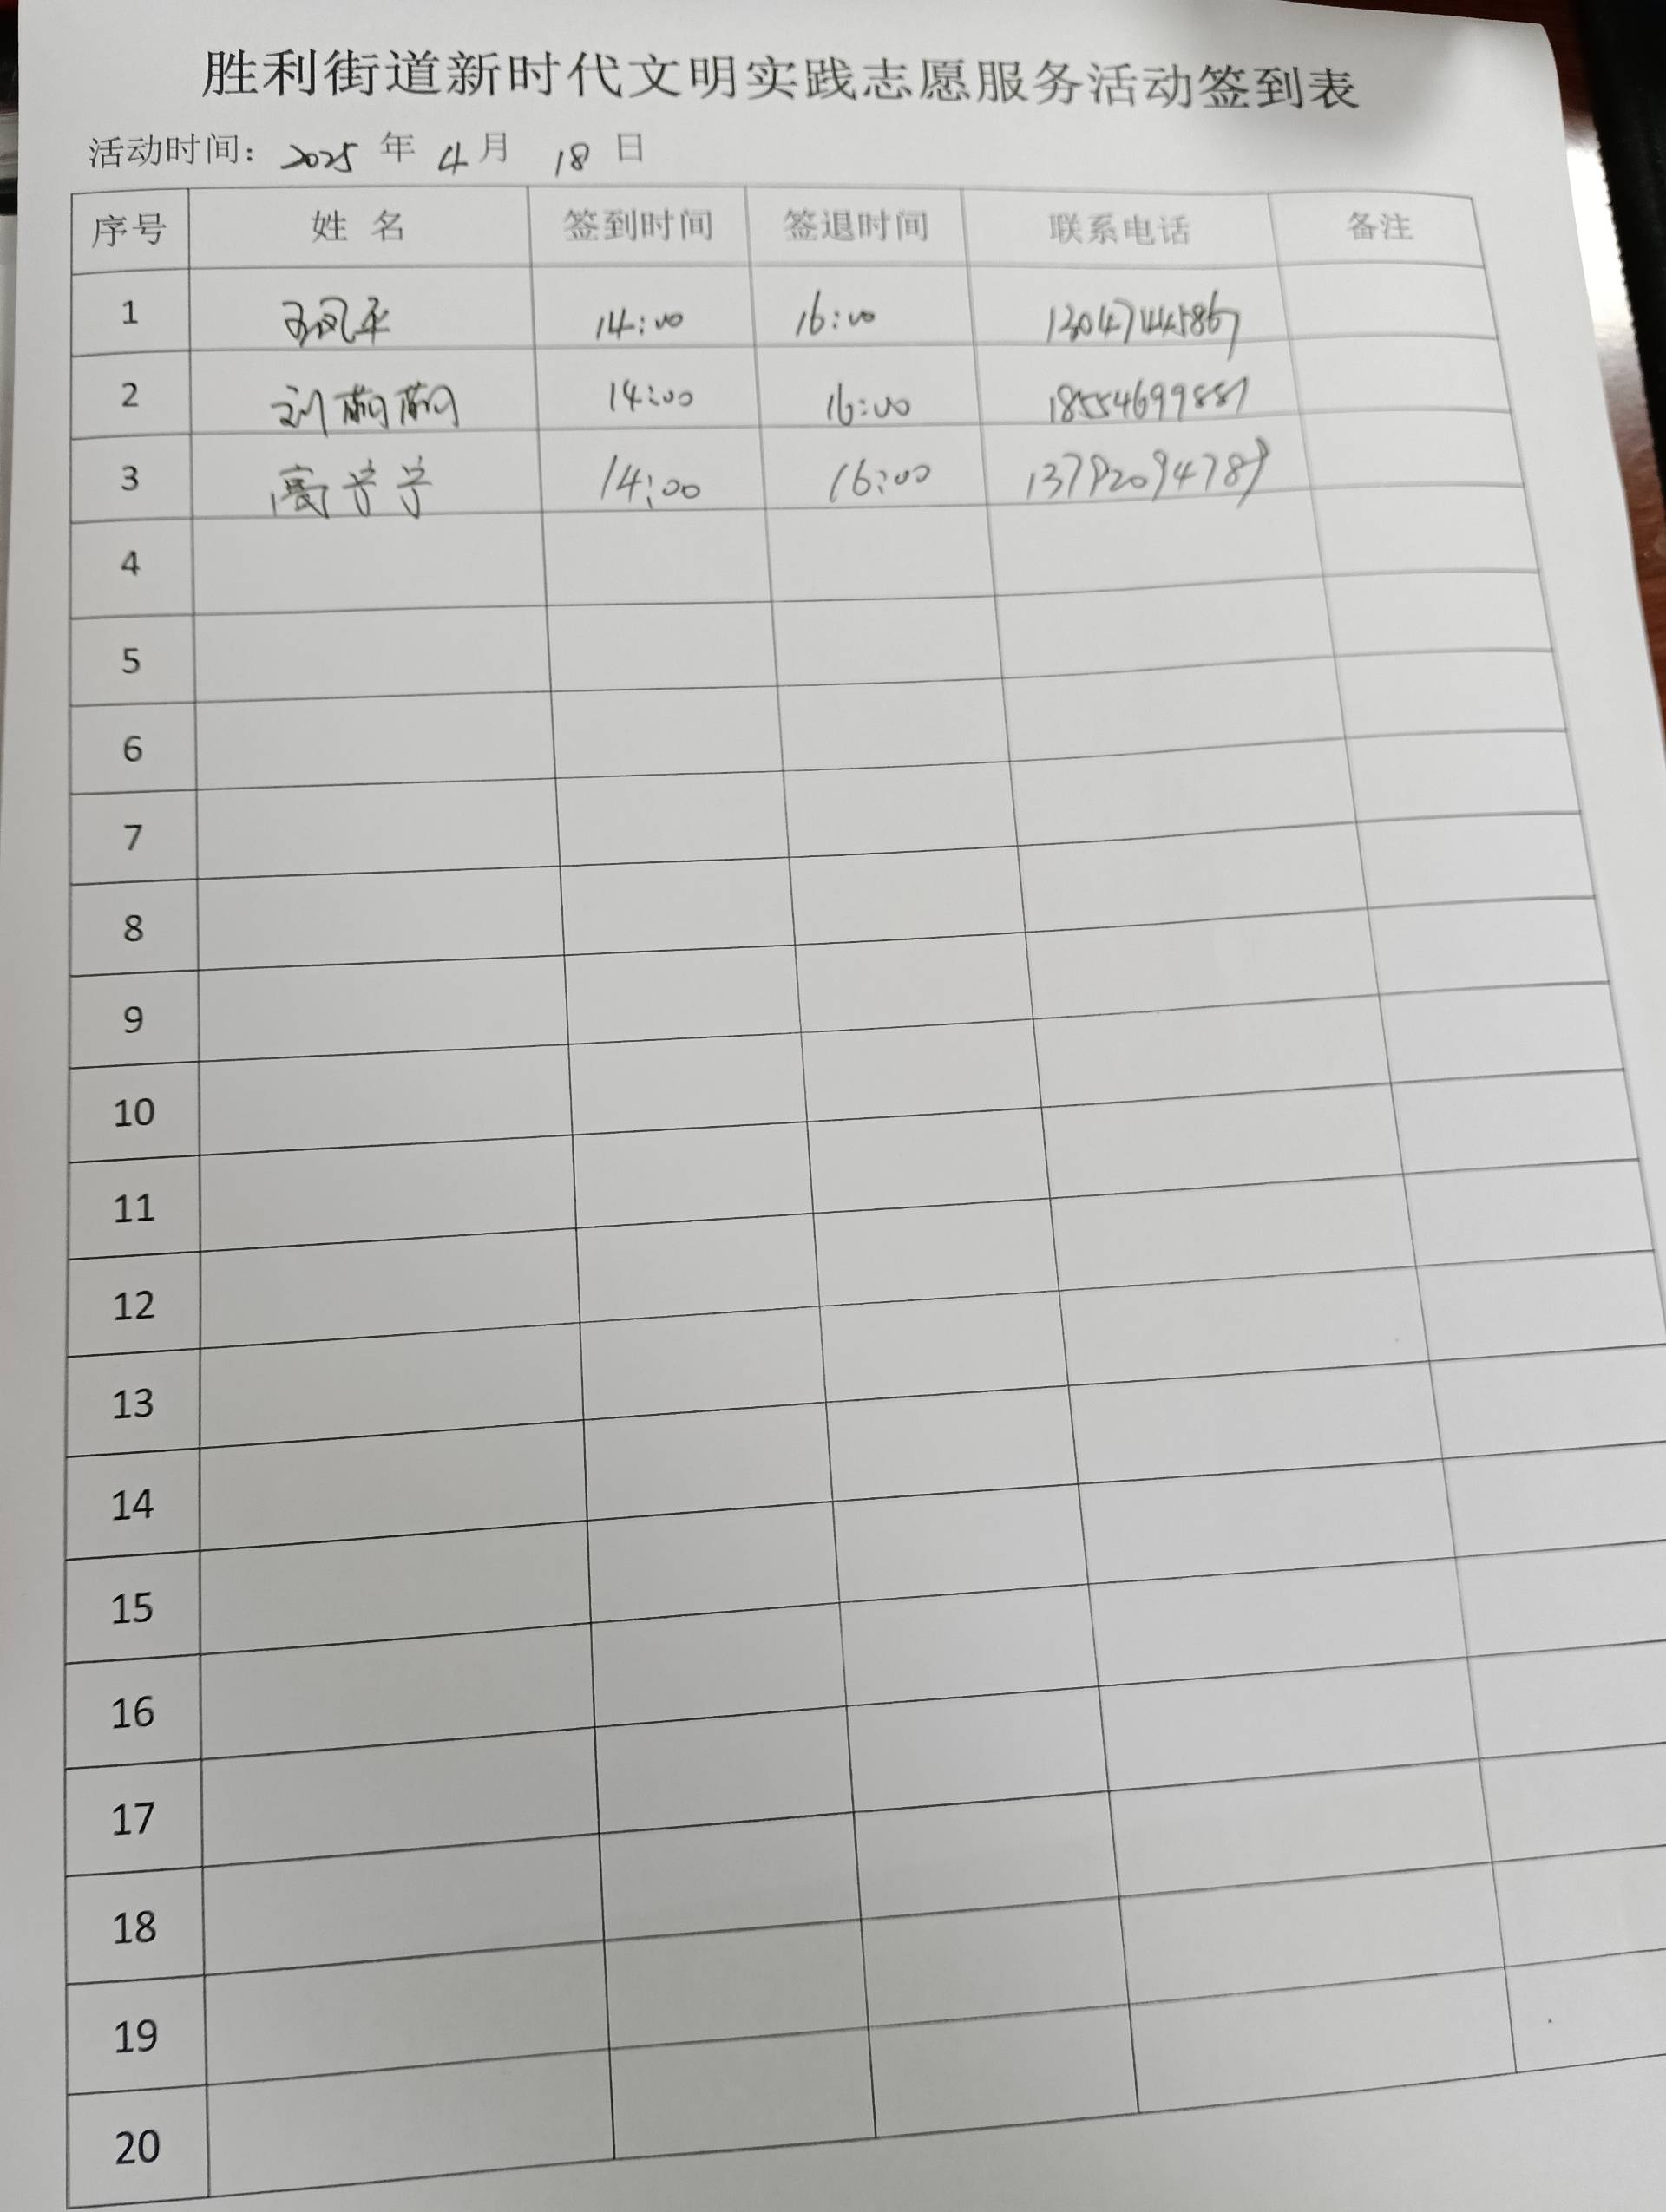 胜利街道新时代文明实践志愿服务活动签到表
活动时间: 2025 年 4 月 18 日
序号 姓 名 签到时间 签退时间 联系电话 备注
1 14:00 16:00
2 刘 14:00 16:00 18554699881
3 高 14:00 16:00 13792094789
4
5
6
7
8
9
10
11
12
13
14
15
16
17
18
19
20